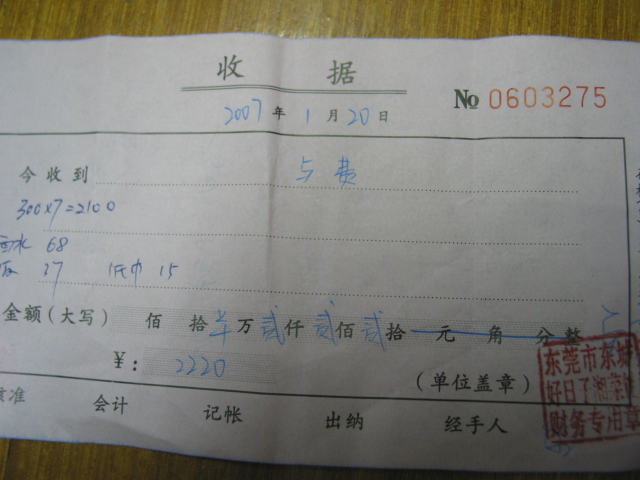 收 据
No 0603275
2007 年 1 月 20 日
今收到 费
300×7=2100
酒水 68
饭 37 纸巾 15
金额(大写) 佰 拾 万 贰 仟 贰 佰 贰 拾 元 角 分 整
¥: 2220
(单位盖章)
东莞市东城
好日子湘菜馆
财务专用章
核准 会计 记帐 出纳 经手人